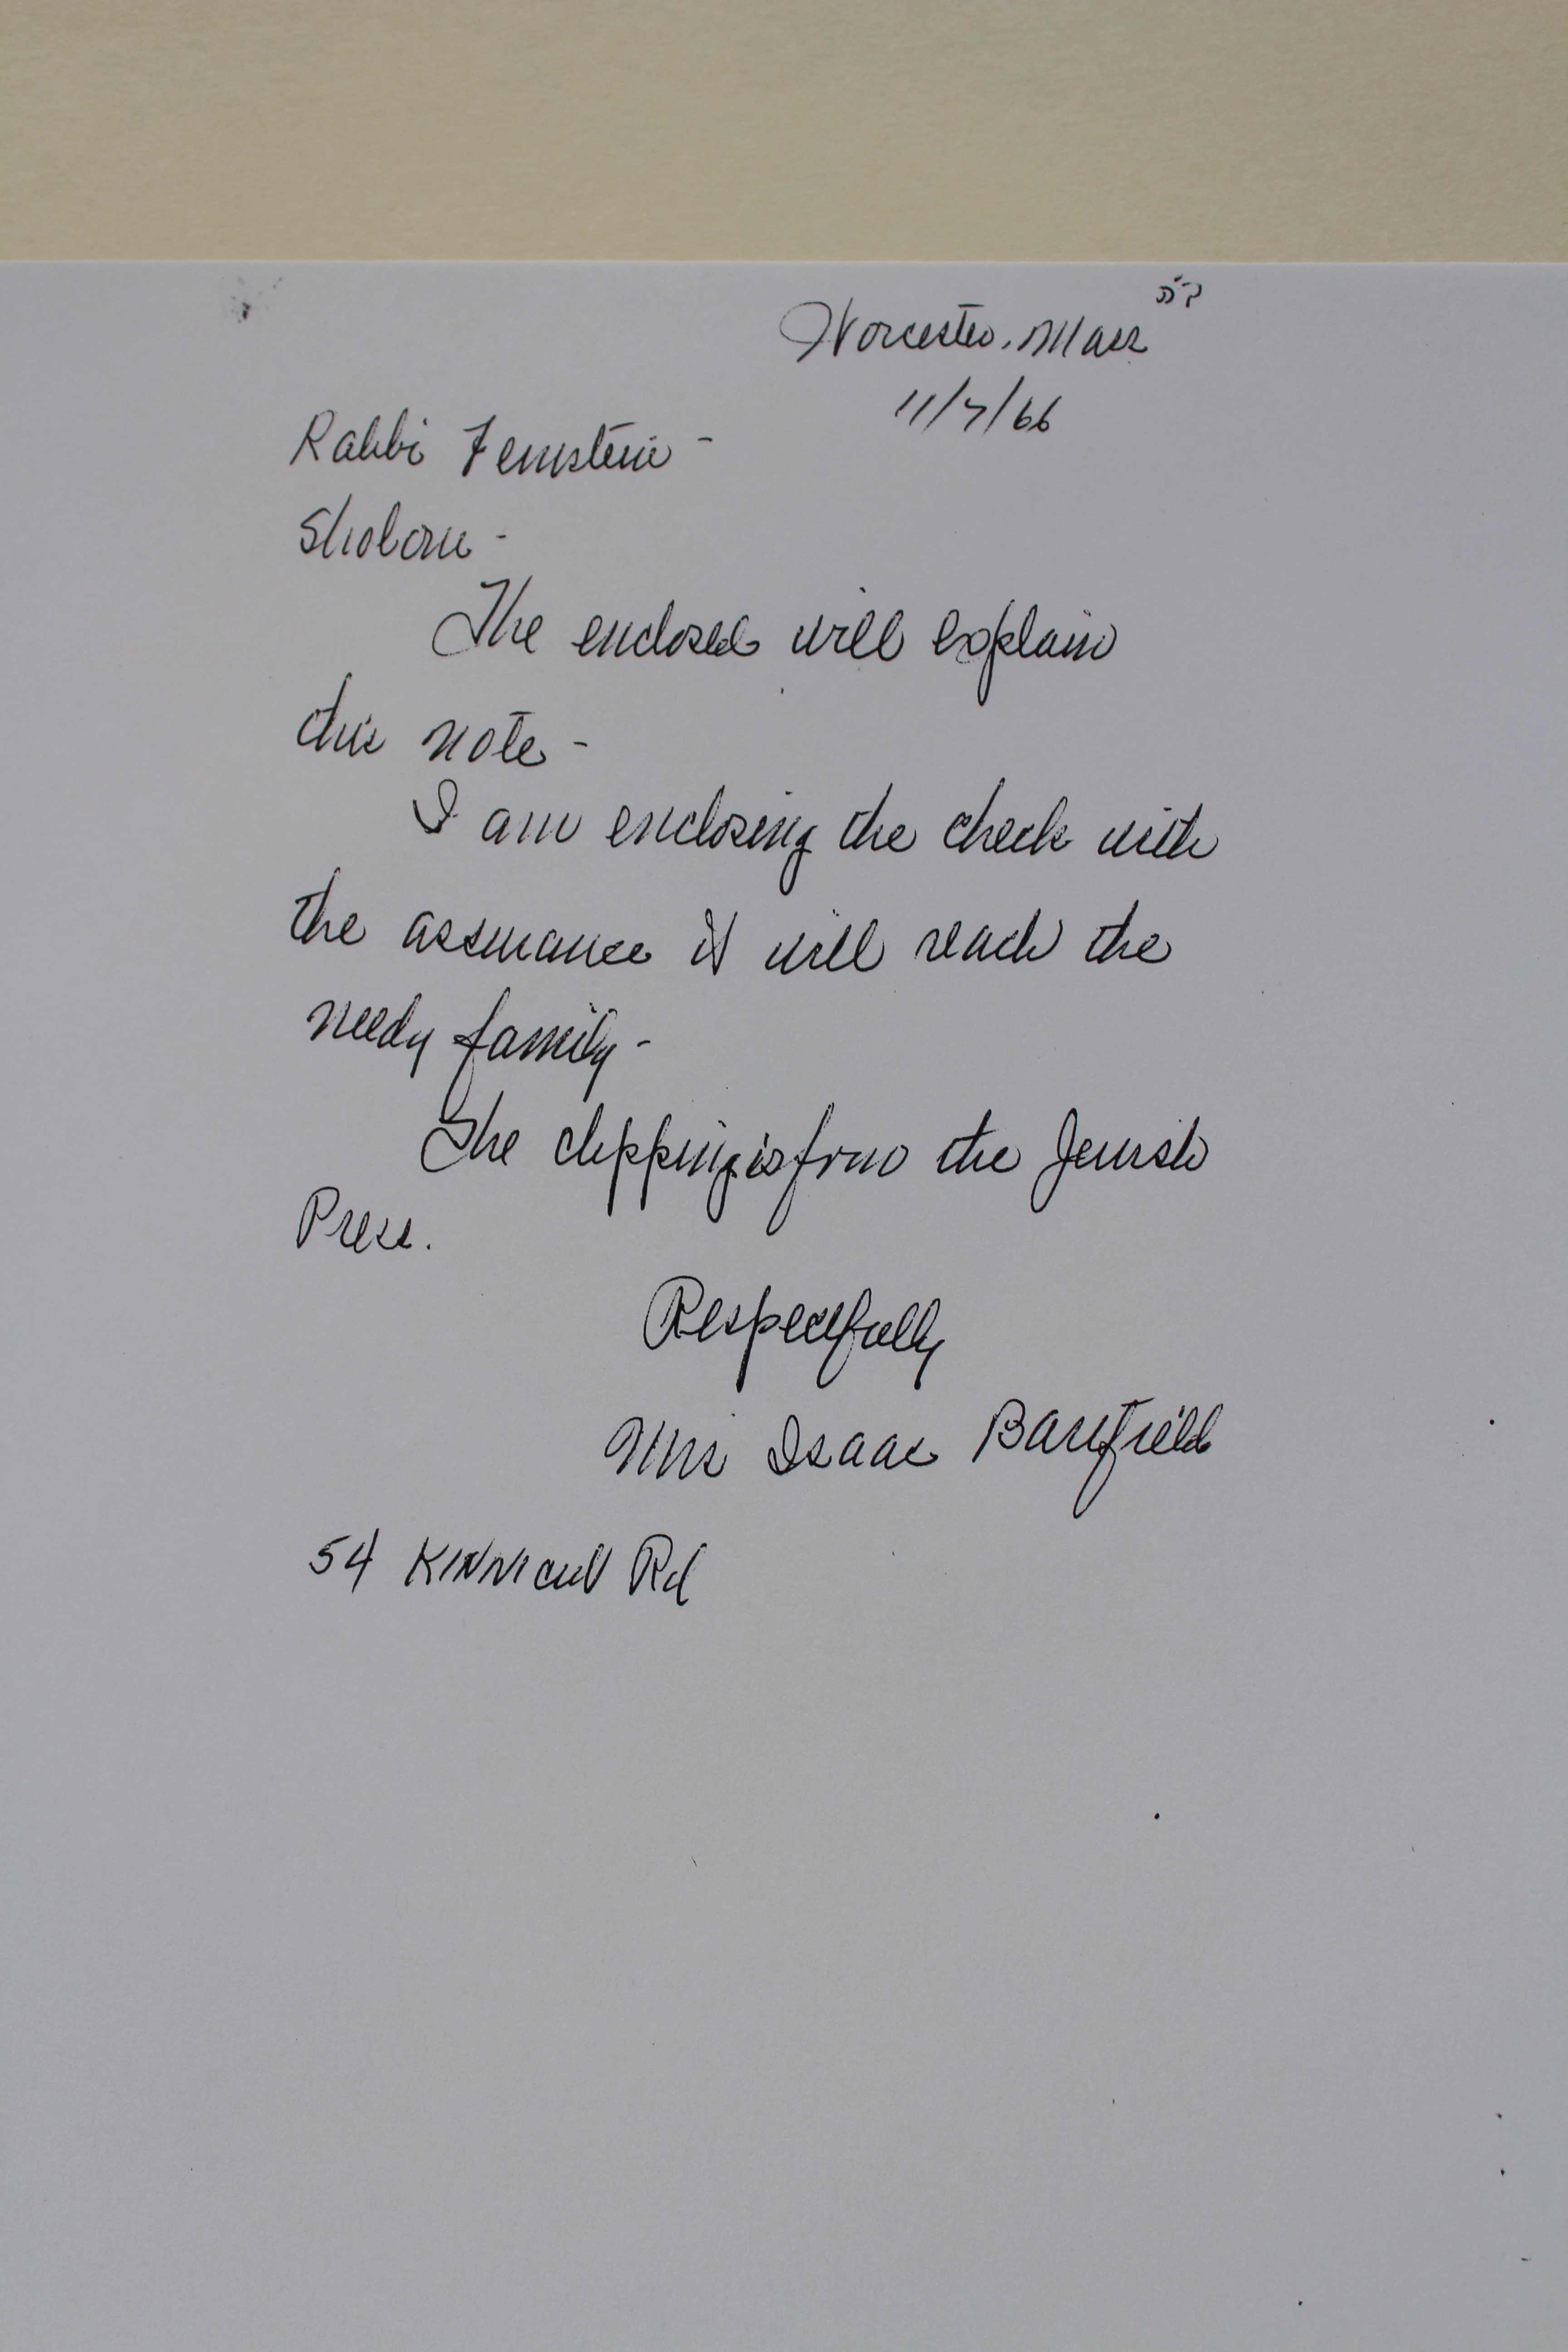 ב״ה
Worcester, Mass
11/7/66
Rabbi Feinstein -
Sholom -
The enclosed will explain
this note -
I am enclosing the check with
the assurance it will reach the
needy family -
The clipping is from the Jewish
Press.
Respectfully
Mrs Isaac Barefield
54 Kinnicutt Rd